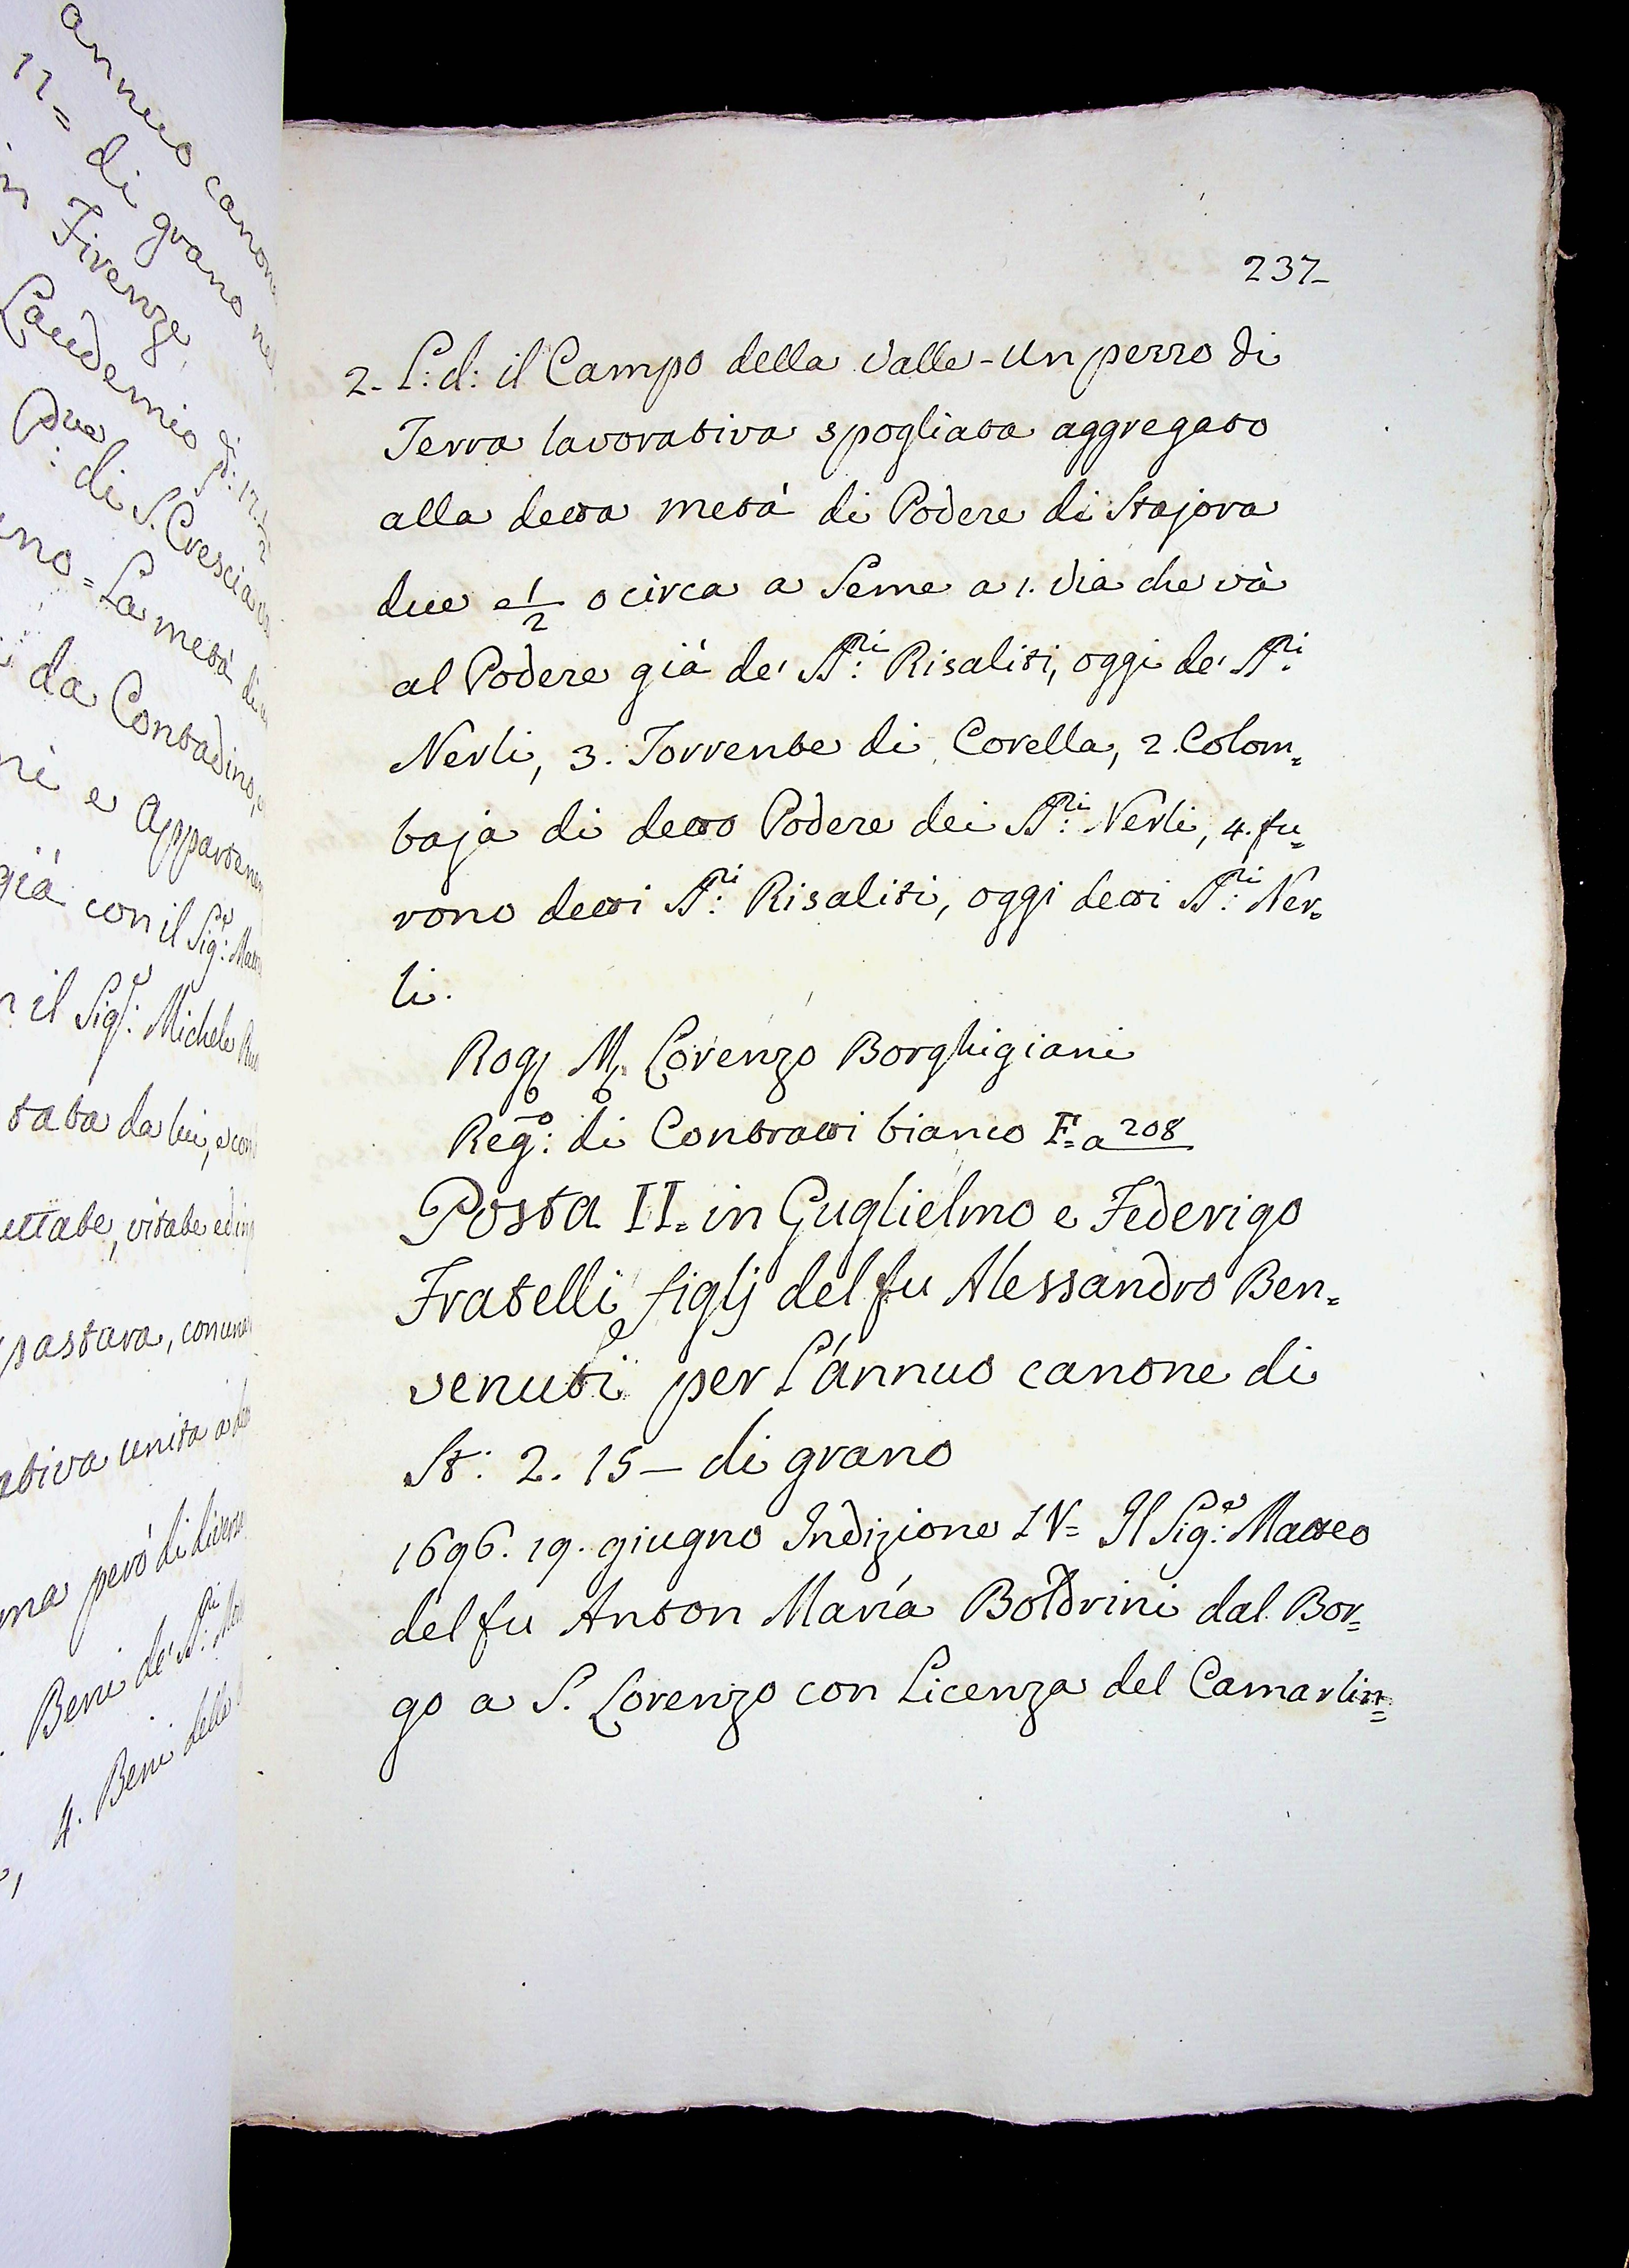 annuo canon
11= di grano ne
Firenze
Laudemio di: 17.½
Due
: di S. Crescia
no = La metà di
da Contadino,
ni e Apparten
già con il Sig.e
il Sig.e Michele
tata da lui, e con
uttate, vitate ed
pastura, con una
ativa unita a
ma però di diverso
Beni de' SS.ri
4. Beni delle
237_
2. L: d: il Campo della Valle - Un pezzo di
Terra lavorativa spogliata aggregato
alla detta metà di Podere di Stajora
due e 1/2 o circa a Seme a 1. Via che và
al Podere già de' SS:ri Risaliti, oggi de' SS:ri
Nerli, 3. Torrente di Corella, 2. Colom=
baja di detto Podere dei SS:ri Nerli, 4. fu=
rono detti SS:ri Risaliti, oggi detti SS:ri Ner=
li.
Rog. M. Lorenzo Borghigiani
Reg:o di Contratti bianco F= a 208
Posta II. in Guglielmo e Federigo
Fratelli e figlj del fu Alessandro Ben=
venuti per L'annuo canone di
St: 2. 15 — di grano
1696. 19. giugno Indizione IV= Il Sig:e Matteo
del fu Anton Maria Boldrini dal Bor=
go a S. Lorenzo con Licenza del Camarlin=